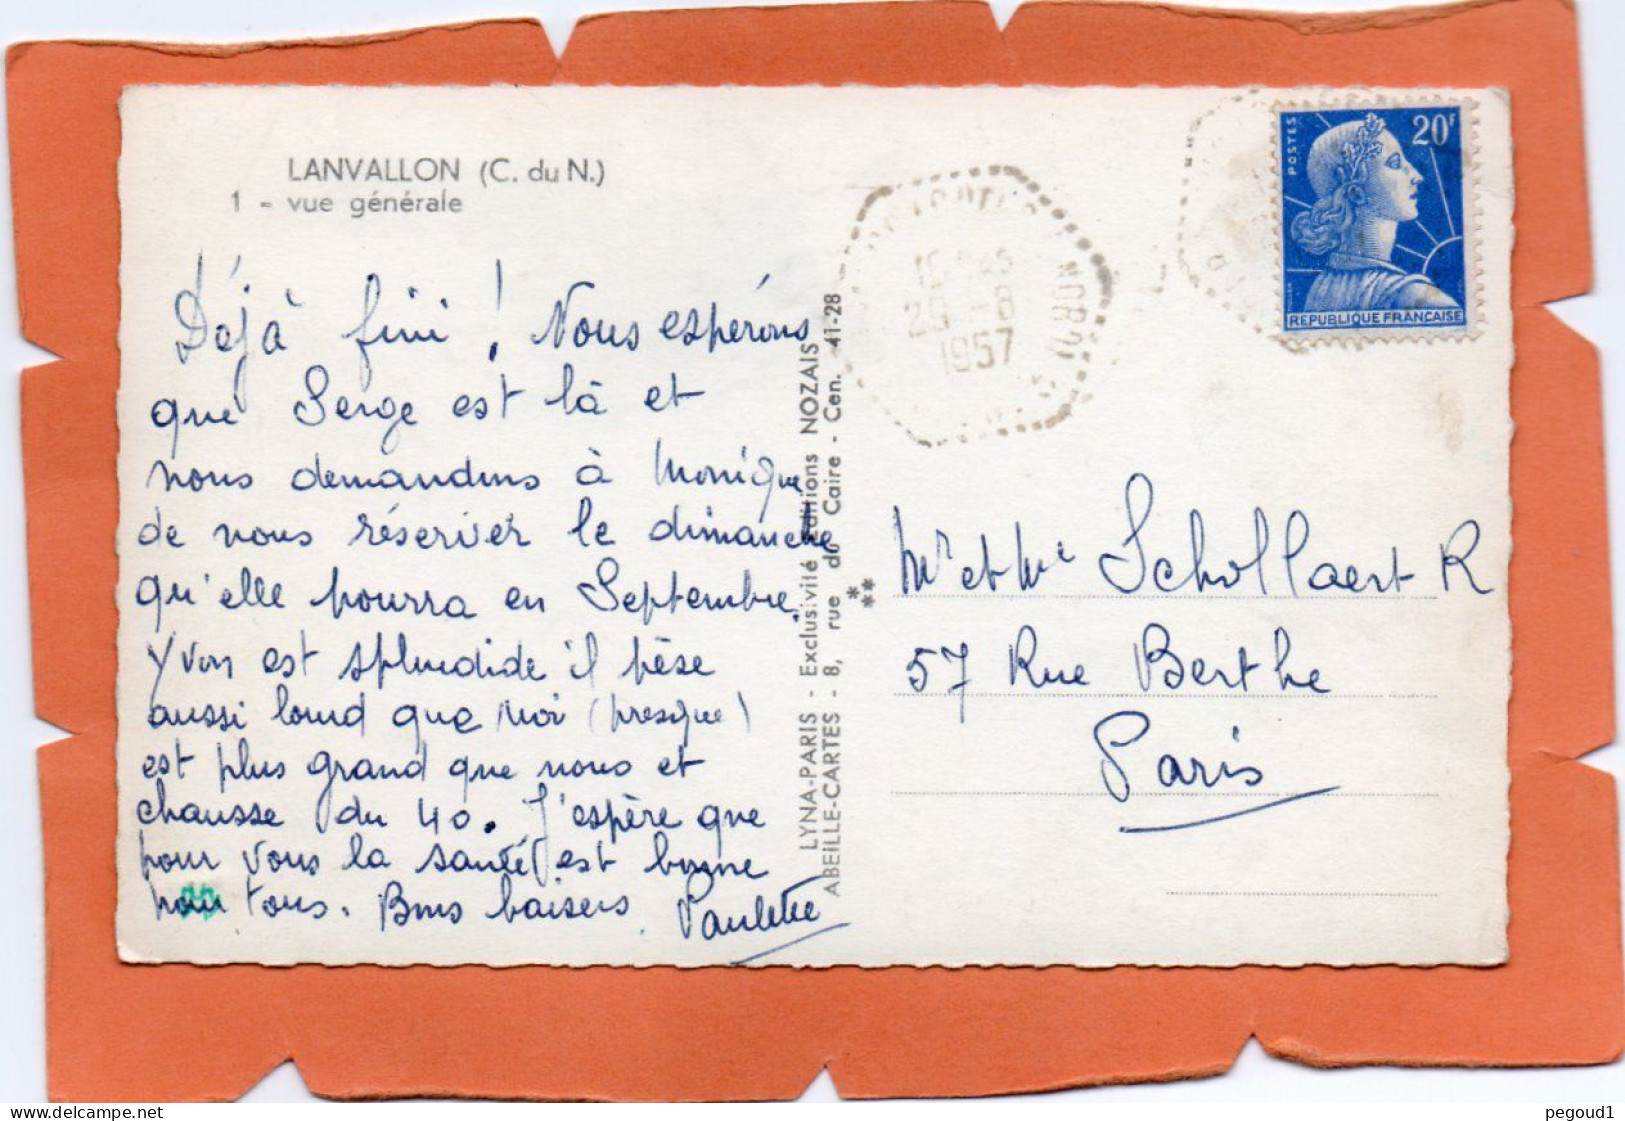 LANVALLON (C. du N.)
1 - vue générale
Déjà fini ! Nous espérons
que Serge est là et
nous demandons à Monique
de nous réserver le dimanche
qu'elle pourra en Septembre.
Yvon est splendide il pèse
aussi lourd que moi (presque)
est plus grand que nous et
chausse du 40. J'espère que
pour vous la santé est bonne
pour tous. Bons baisers Paulette
LYNA-PARIS - Exclusivité Editions NOZAIS
ABEILLE-CARTES - 8, rue du Caire - Cen. 41-28
29 -8
1957
NORD
20F
POSTES
REPUBLIQUE FRANÇAISE
Mr et Me Schollaert R
57 Rue Berthe
Paris
delcampe.net
pegoud1